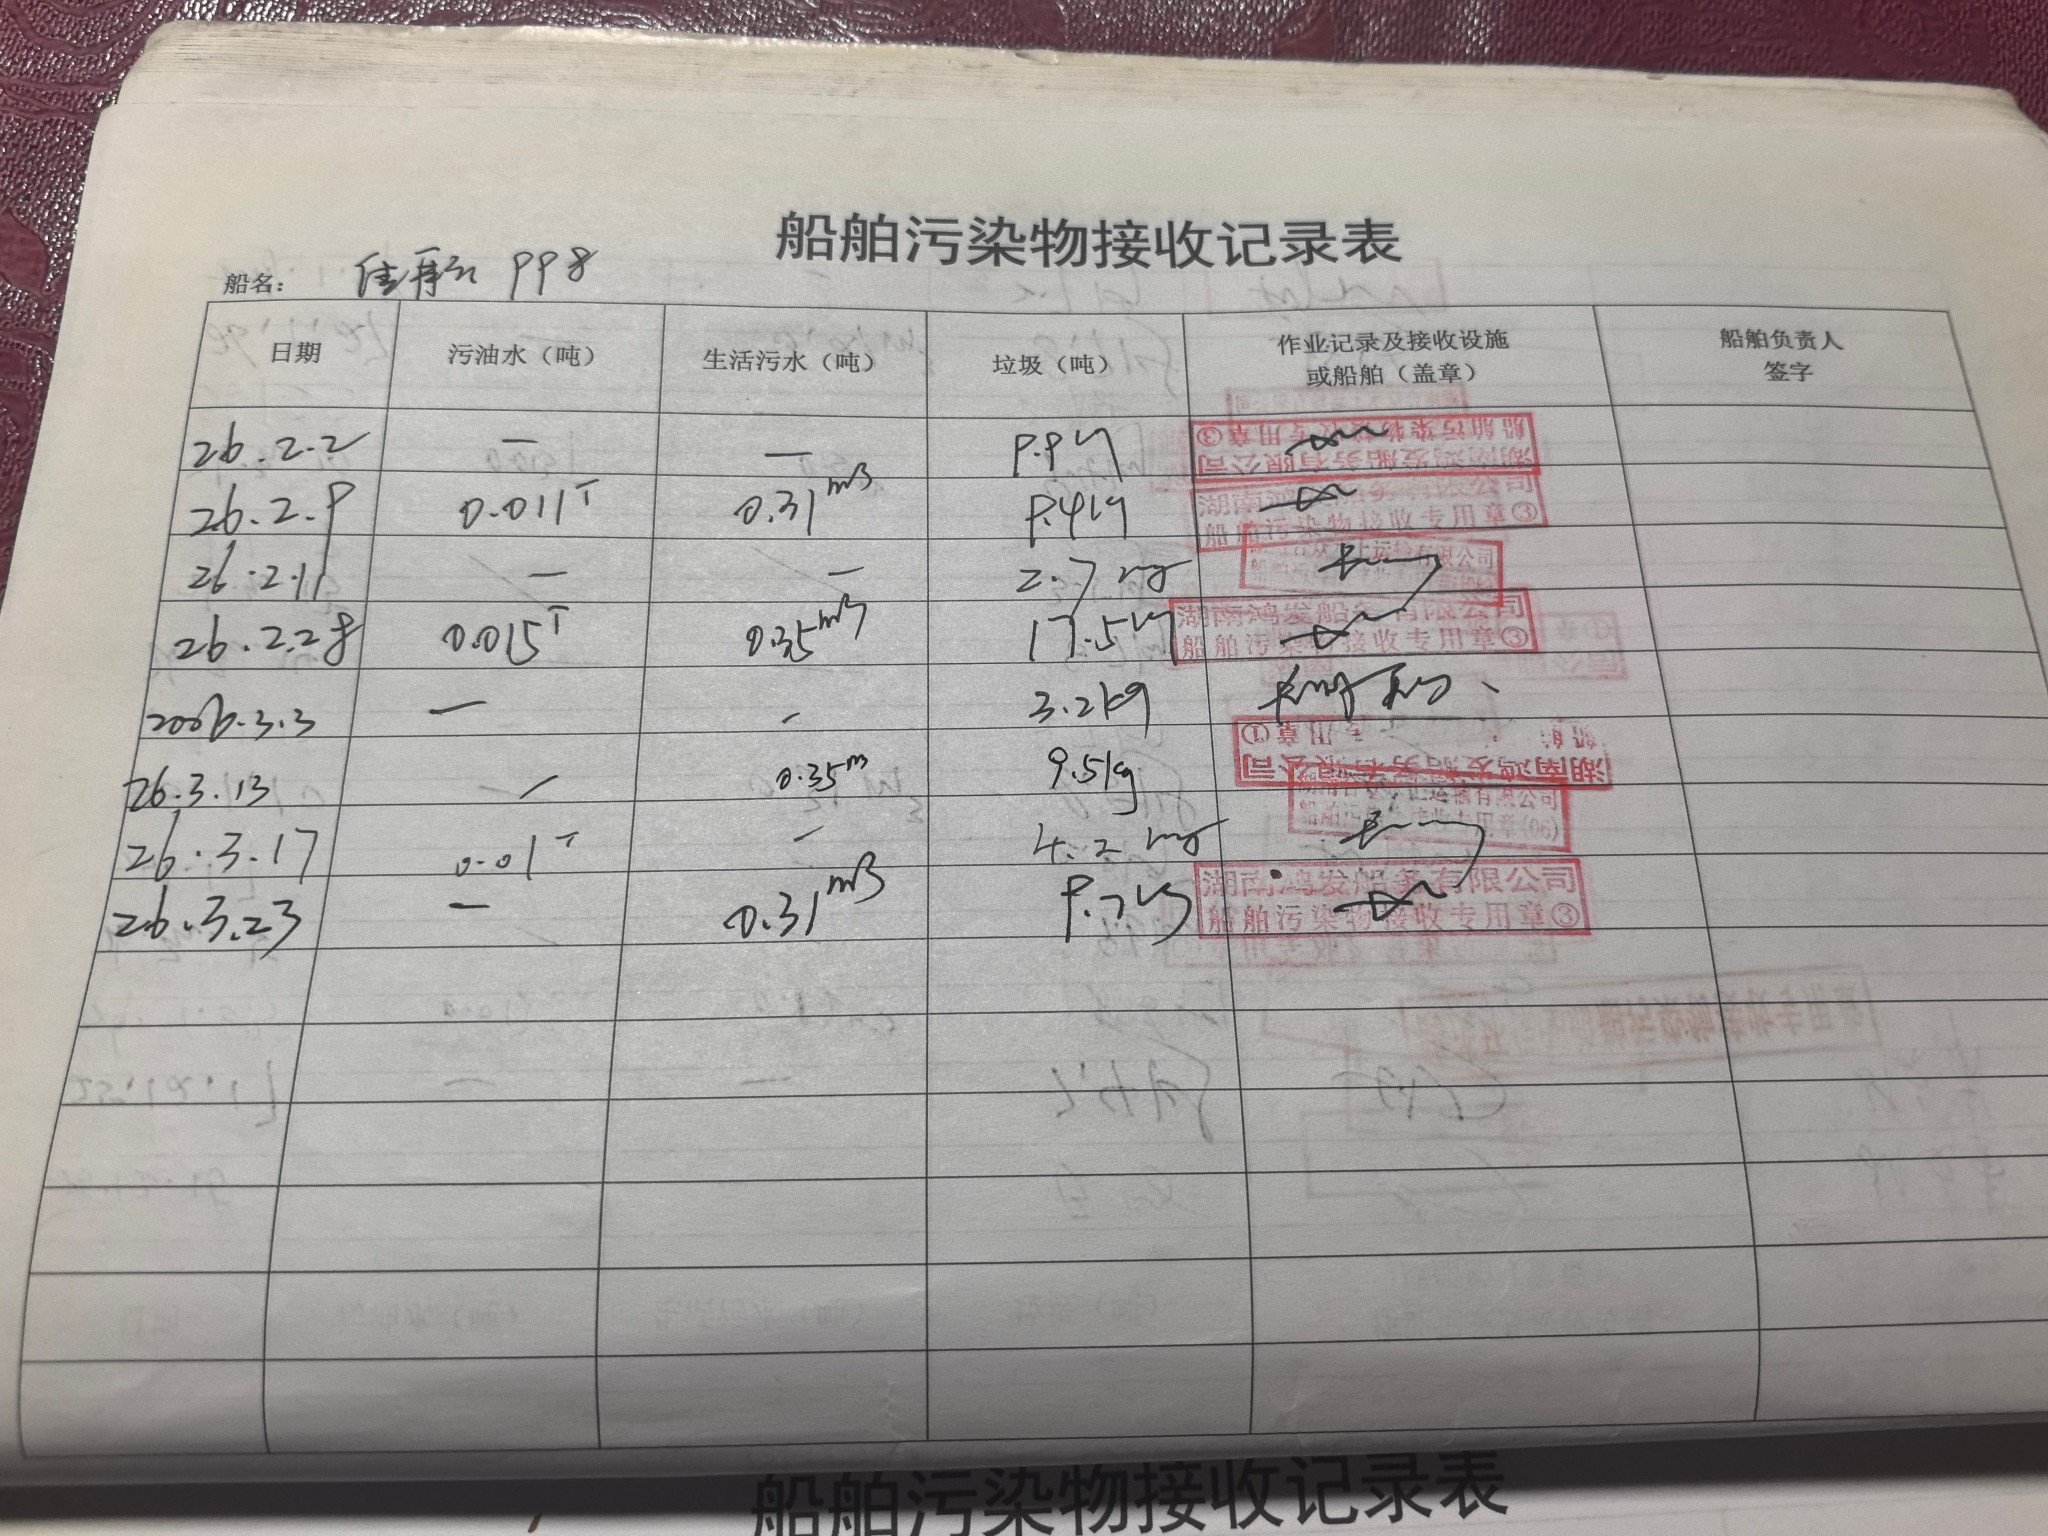 船舶污染物接收记录表
船名： 998
日期 污油水（吨） 生活污水（吨） 垃圾（吨） 作业记录及接收设施或船舶（盖章） 船舶负责人签字
26.2.2 — — 9.9kg 湖南鸿发船务有限公司 船舶污染物接收专用章③
26.2.9 0.011T 0.31m3 9.4kg 湖南鸿发船务有限公司 船舶污染物接收专用章③
26.2.11 — — 2.7kg
26.2.28 0.015T 0.35m3 17.5kg 湖南鸿发船务有限公司 船舶污染物接收专用章③
2006.3.3 — — 3.2kg
26.3.13 — 0.35m 9.5kg 湖南鸿发船务有限公司 船舶 专用章①
26.3.17 0.01T — 4.2kg 运输有限公司 船舶污染物接收专用章(06)
26.3.23 — 0.31m3 9.7kg 湖南鸿发船务有限公司 船舶污染物接收专用章③
船舶污染物接收记录表